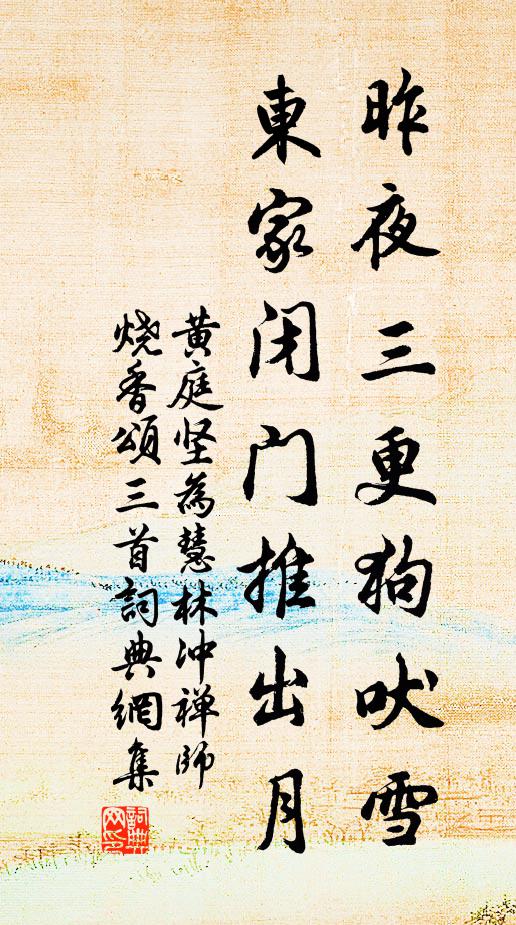 昨夜三更狗吠雪
東家闭门推出月
黄庭坚為慧林冲禅师
烧香頌三首詞典網集
詞典
网印